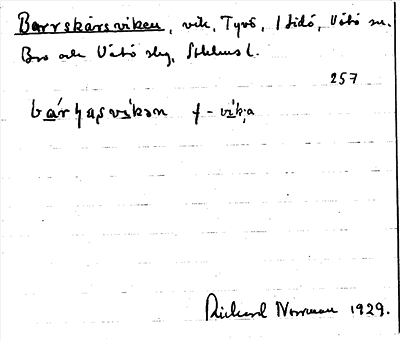 Barrskärsviken, vik, Tyvö, I Lidö, Vätö sn.
Bro och Vätö slg, Sthlms l.
257
bárʃʒaʂvikən f - vik̦a
Rickard Norrman 1929.